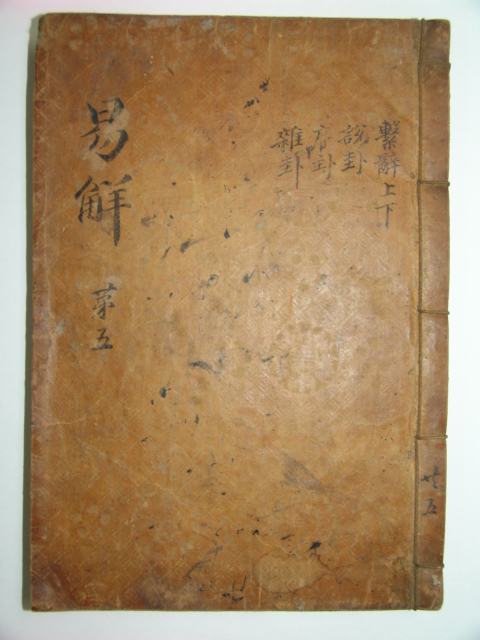 繫辭上下
說卦
序卦
雜卦
易解
第五
共五